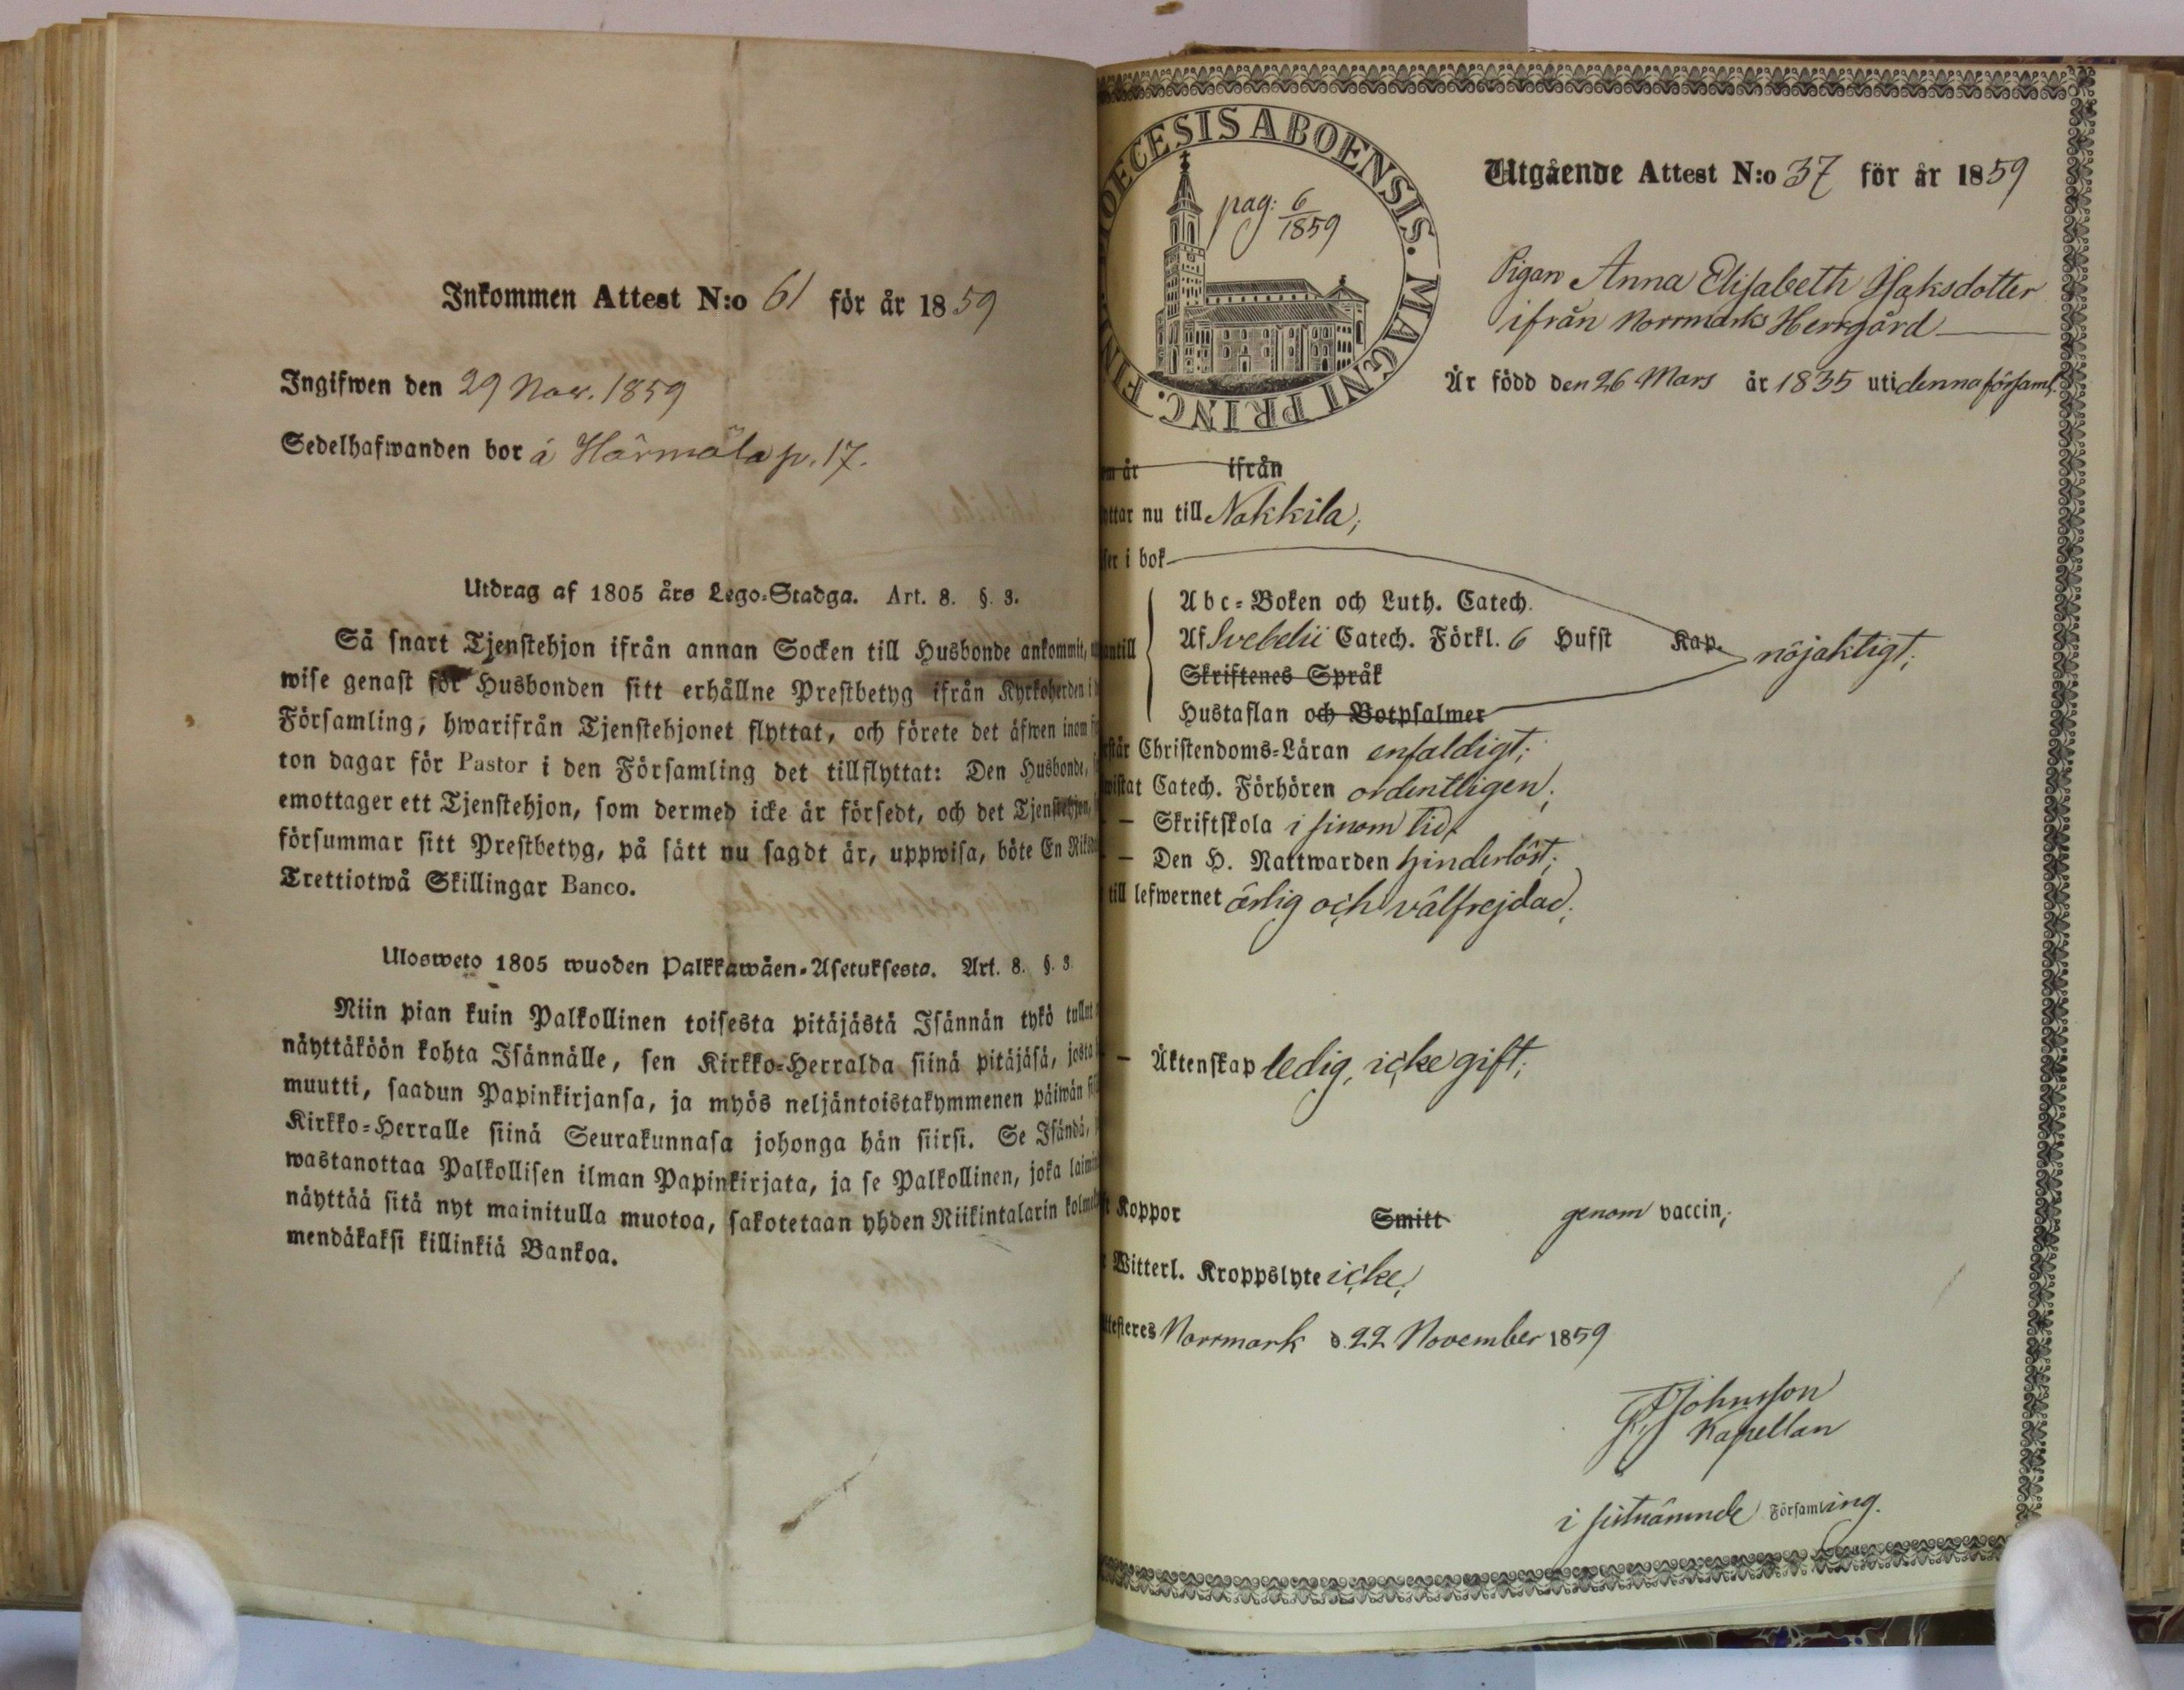 Inkommen Attest N:o 61 för år 1859
Ingifwen den 29 Nov. 1859
Sedelhafwanden bor å Hårmåla p. 17.
Utdrag af 1805 års Lego-Stadga. Art. 8. §. 3.
Så snart Tjenstehjon ifrån annan Socken till Husbonde ankommit,
wise genast för Husbonden sitt erhållne Prestbetyg ifrån Kyrkoherden i
Församling, hwarifrån Tjenstehjonet flyttat, och förete det äfwen inom
ton dagar för Pastor i den Församling det tillflyttat: Den Husbonde,
emottager ett Tjenstehjon, som dermed icke är försedt, och det Tjenstehjon,
försummar sitt Prestbetyg, på sätt nu sagdt är, uppwisa, böte En
Trettiotwå Skillingar Banco.
Ulosweto 1805 wuoden Palkkawäen-Asetuksesta. Art. 8. §. 3
Niin pian kuin Palkollinen toisesta pitäjästä Isännän tykö tullut
näyttäköön kohta Isännälle, sen Kirkko-Herralda siinä pitäjäsä, josta
muutti, saadun Papinkirjansa, ja myös neljäntoistakymmenen päiwän
Kirkko-Herralle siinä Seurakunnasa johonga hän siirsi. Se Isändä,
wastanottaa Palkollisen ilman Papinkirjata, ja se Palkollinen, joka
näyttää sitä nyt mainitulla muotoa, sakotetaan yhden Riikintalarin
mendäkaksi killinkiä Bankoa.
OECESIS ABOENSIS. MAGNI PRINC. FIN
pag: 6/1859
Utgående Attest N:o 37 för år 1859
Pigan Anna Elisabeth Isaksdotter
ifrån Norrmarks Herrgård
Är född den 26 Mars år 1835 uti denna församl.
år ifrån
ttar nu till Nakkila;
ser i bok
Abc-Boken och Luth. Catech.
antill Af Svebelii Catech. Förkl. 6 Hufst Kap. nöjaktigt;
Skriftenes Språk
Hustaflan och Botpsalmer
står Christendoms-Läran enfaldigt;
wistat Catech. Förhören ordentligen;
— Skriftskola i sinom tid;
— Den H. Nattwarden hinderlöst;
till lefwernet ärlig och välfrejdad;
— Äktenskap ledig, icke gift;
Koppor Smitt genom vaccin;
Witterl. Kroppslyte icke;
ttesteres Norrmark d. 22 November 1859
Johnsson
Kapellan
i sistnämnde Församling.